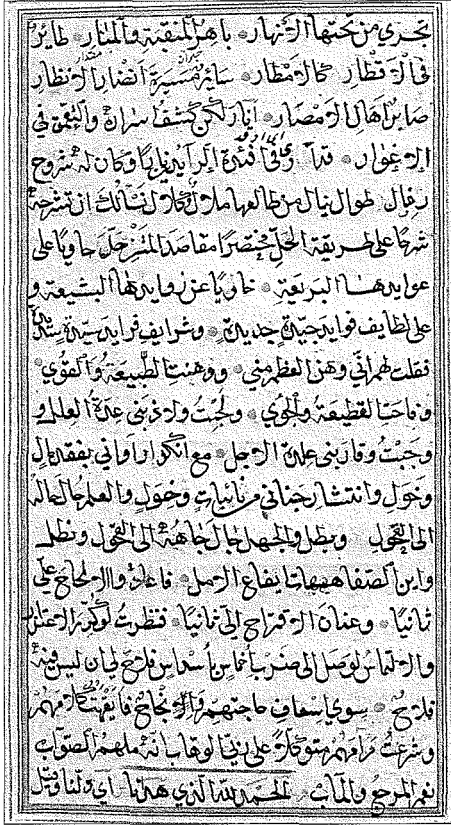 تجري من تحتها الانهار باهر المنقبة والمنار طاير
في الاقطار كالامطار ساير مسيرة انضار الانظار
صابرا هال الامصار انار لكن كشفا سراره والتعمق في
الاغوار قدا
رقال طوال ينال من طالعها ملال وكلال فسألك ان تشرحه
شرحا على طريقة الحل مختصرا مقاصد المنزحل حاويا على
عوايدها البديعة خاويا عن زوايدها البشيعة و
على لطايف فوايد جيدة جديدة وشرايف فرايد سيدة سديدة
فقلت لهم اني وهن العظم مني ووهنت الطبيعة والقوي
وفاحت القطيعة والجوي ولحبت ولاذ بني عدة العلل و
وجبت وقاربني علدة الاجل مع انكوار اواني بفقد بال
وخول وانتشار جناني من نائبات وخول والعلم حال حاله
الى التحول وبطل والجهل جال جاهه الى القول ونطل
واين الصفا هيهات ايفاع الامل فاعادوا الالحاح علي
ثانيا وعنان الاقتراح الي ثمانيا فنظرت لو كرر الاعتذار
والالتماس لوصل الى ضرب اخماس باسداس فلاح لي ان ليس فيه
فلاح سوي اسعاف حاجتهم والانجاح فايقهت كلامهم
وشرعت مرامهم متوكلا على ربنا الوهاب انه ملهم الصواب
نعم المرجع والمآب الحمد لله الذي هدانا اي ولنا وقيل